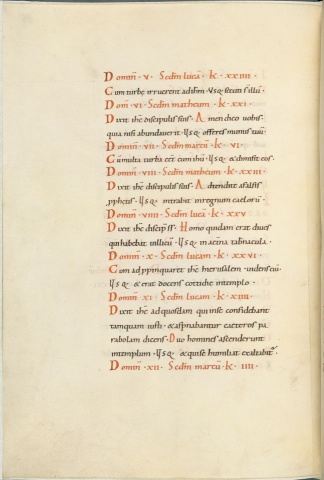 Domin · v · Scdm lucã · k · xxiiii ·
Cum turbę irruerent adihm · usq; secuti sť illũ ·
Dom̃ · vi · Scdm matheum · k · xxi ·
Dixit ihc discipulis suis · Amen dico uobis ·
quia nisi abundauerit · usq; offeres munus tuũ ·
Domin · vii · Scdm marcũ · k · vi ·
Cũ multa turba eet cum ihũ · usq; & dimisit eos ·
Domin · viii · Scdm matheum · k · xxiii ·
Dixit ihc discipulis suis · Adtendite afalsis
pphetis · usq; intrabit inregnum caeloru ·
Domin · viiii · Scdm lucã · k · xxv ·
Dixit ihc discipłs s · Homo quidam erat diues
qui habebat uillicũ · usq; in aetna tabnacula ·
Domin · x · Scdm lucam · k · xxxvi ·
Cum adppinquaret ihc hierusalem · uidens ciui
usq; & erat docens cottidie intemplo ·
Domin · xi · Scdm lucam · k · xliiii ·
Dixit ihc ad quosdam qui inse confidebant
tamquam iusti · & aspnabantur caeteros pa
rabolam dicens · Duo homines ascenderunt
intemplum · usq; & qui se humiliat exaltabit ·
Domin · xii · Scdm marcũ · k · iiii ·